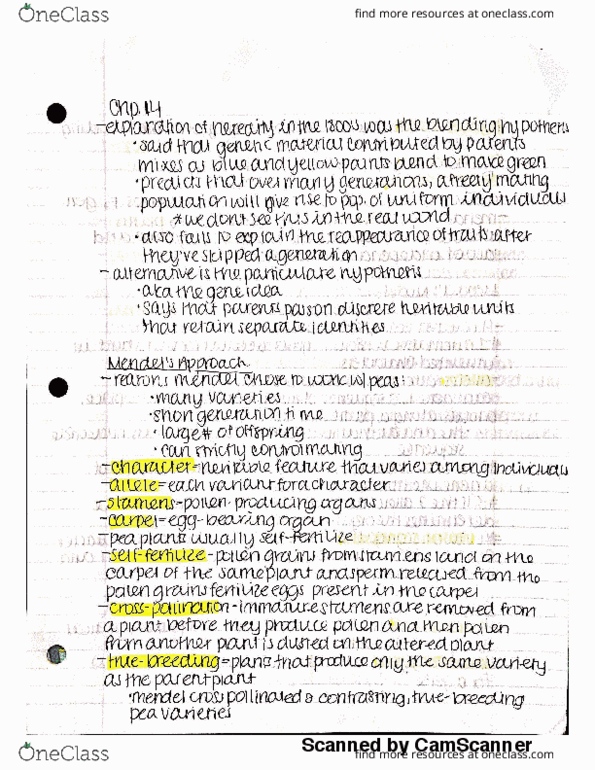 OneClass
find more resources at oneclass.com
Chp. 14
-explanation of heredity in the 1800s was the blending hypothesis
•said that genetic material contributed by parents
mixes as blue and yellow paints blend to make green
•predicts that over many generations, a freely mating
population will give rise to pop. of uniform individuals
*we dont see this in the real world
•also fails to explain the reappearance of traits after
they've skipped a generation
-alternative is the particulate hypothesis
•aka the gene idea
•says that parents pass on discrete heritable units
that retain separate identities
Mendel's Approach
-reasons mendel chose to work w/ peas:
•many varieties
•short generation time
•large # of offspring
•can strictly control mating
-character=heritable feature that varies among individuals
-allele=each variant for a character
-stamens=pollen-producing organs
-carpel=egg-bearing organ
-pea plants usually self-fertilize
-self-fertilize-pollen grains from stamens land on the
carpel of the same plant and sperm released from the
pollen grains fertilize eggs present in the carpel
-cross-pollination-immature stamens are removed from
a plant before they produce pollen and then pollen
from another plant is dusted on the altered plant
true-breeding=plants that produce only the same variety
as the parent plant
•mendel cross pollinated 2 contrasting, true-breeding
pea varieties
Scanned by CamScanner
OneClass
find more resources at oneclass.com